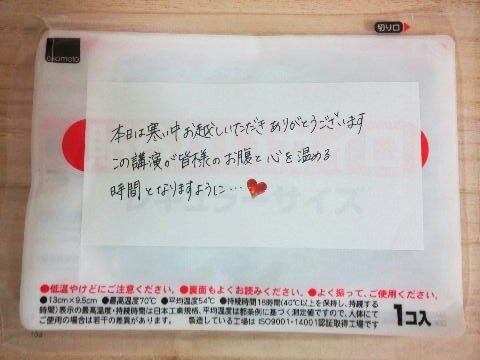 切り口
okamoto
本日は寒い中お越しいただきありがとうございます
この講演が皆様のお腹と心を温める
時間となりますように…
レギュラーサイズ
●低温やけどにご注意ください。●裏面もよくお読みください。●よく振って、ご使用ください。
●13cm×9.5cm ●最高温度70℃ ●平均温度54℃ ●持続時間18時間(40℃以上を保持し、持続する
時間)表示の最高温度・持続時間は日本工業規格、平均温度は都条例に基づく測定値ですので、人体にて
ご使用の場合は若干の差異があります。 製造している工場は ISO9001・14001認証取得工場です
1コ入